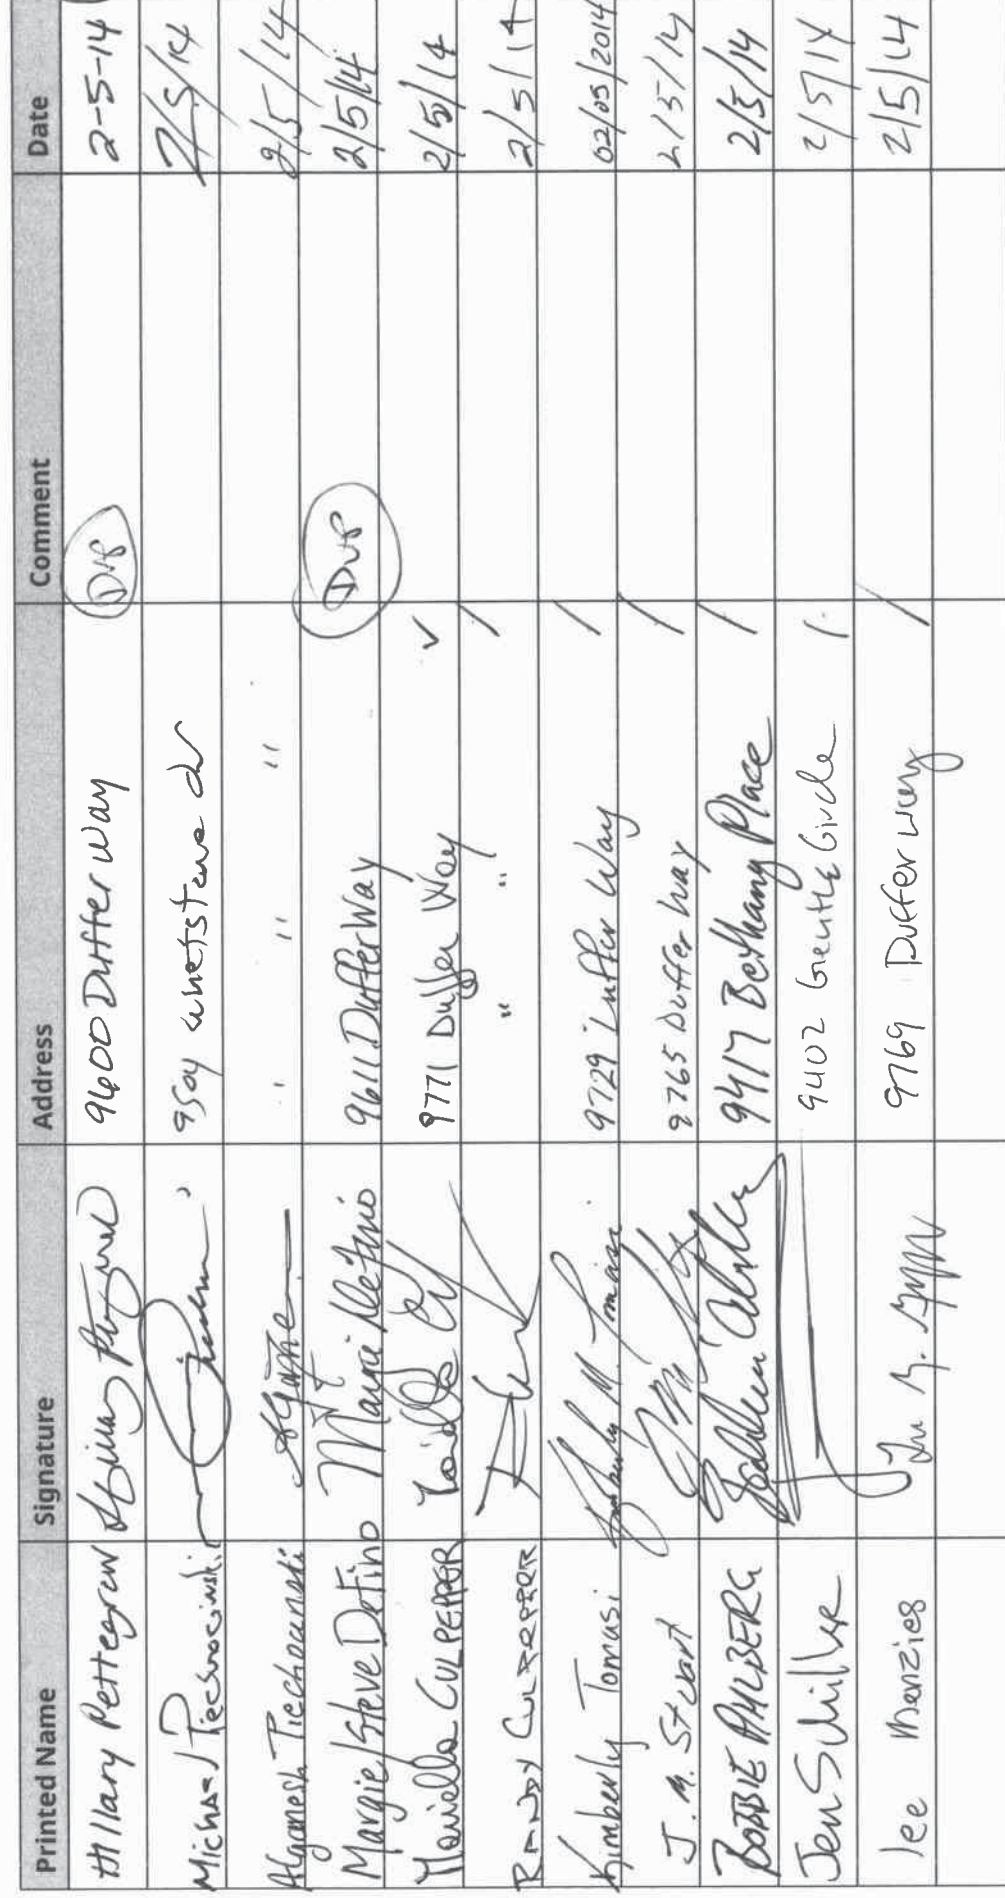 Printed Name Signature Address Comment Date
Hillary Pettegrew 9600 Duffer Way DUP 2-5-14
Michael 9504 Whetstone dr 2/5/14
Alganesh " " " 2/5/14
Margie/Steve DeFino Margie DeFino 9611 Duffer Way DUP 2/5/14
Mariella CULPEPPER 9771 Duffer Way ✓ 2/5/14
RANDY CULPEPPER " " " / 2/5/14
Kimberly Tomasi Kimberly M. Tomasi 9729 Duffer Way / 02/05/2014
J. M. Stuart 9765 Duffer Way / 2/5/14
BOBBIE AHLBERG 9417 Bethany Place / 2/5/14
Jen 9402 Gentle Circle / 2/5/14
Lee Menzies 9769 Duffer Way / 2/5/14